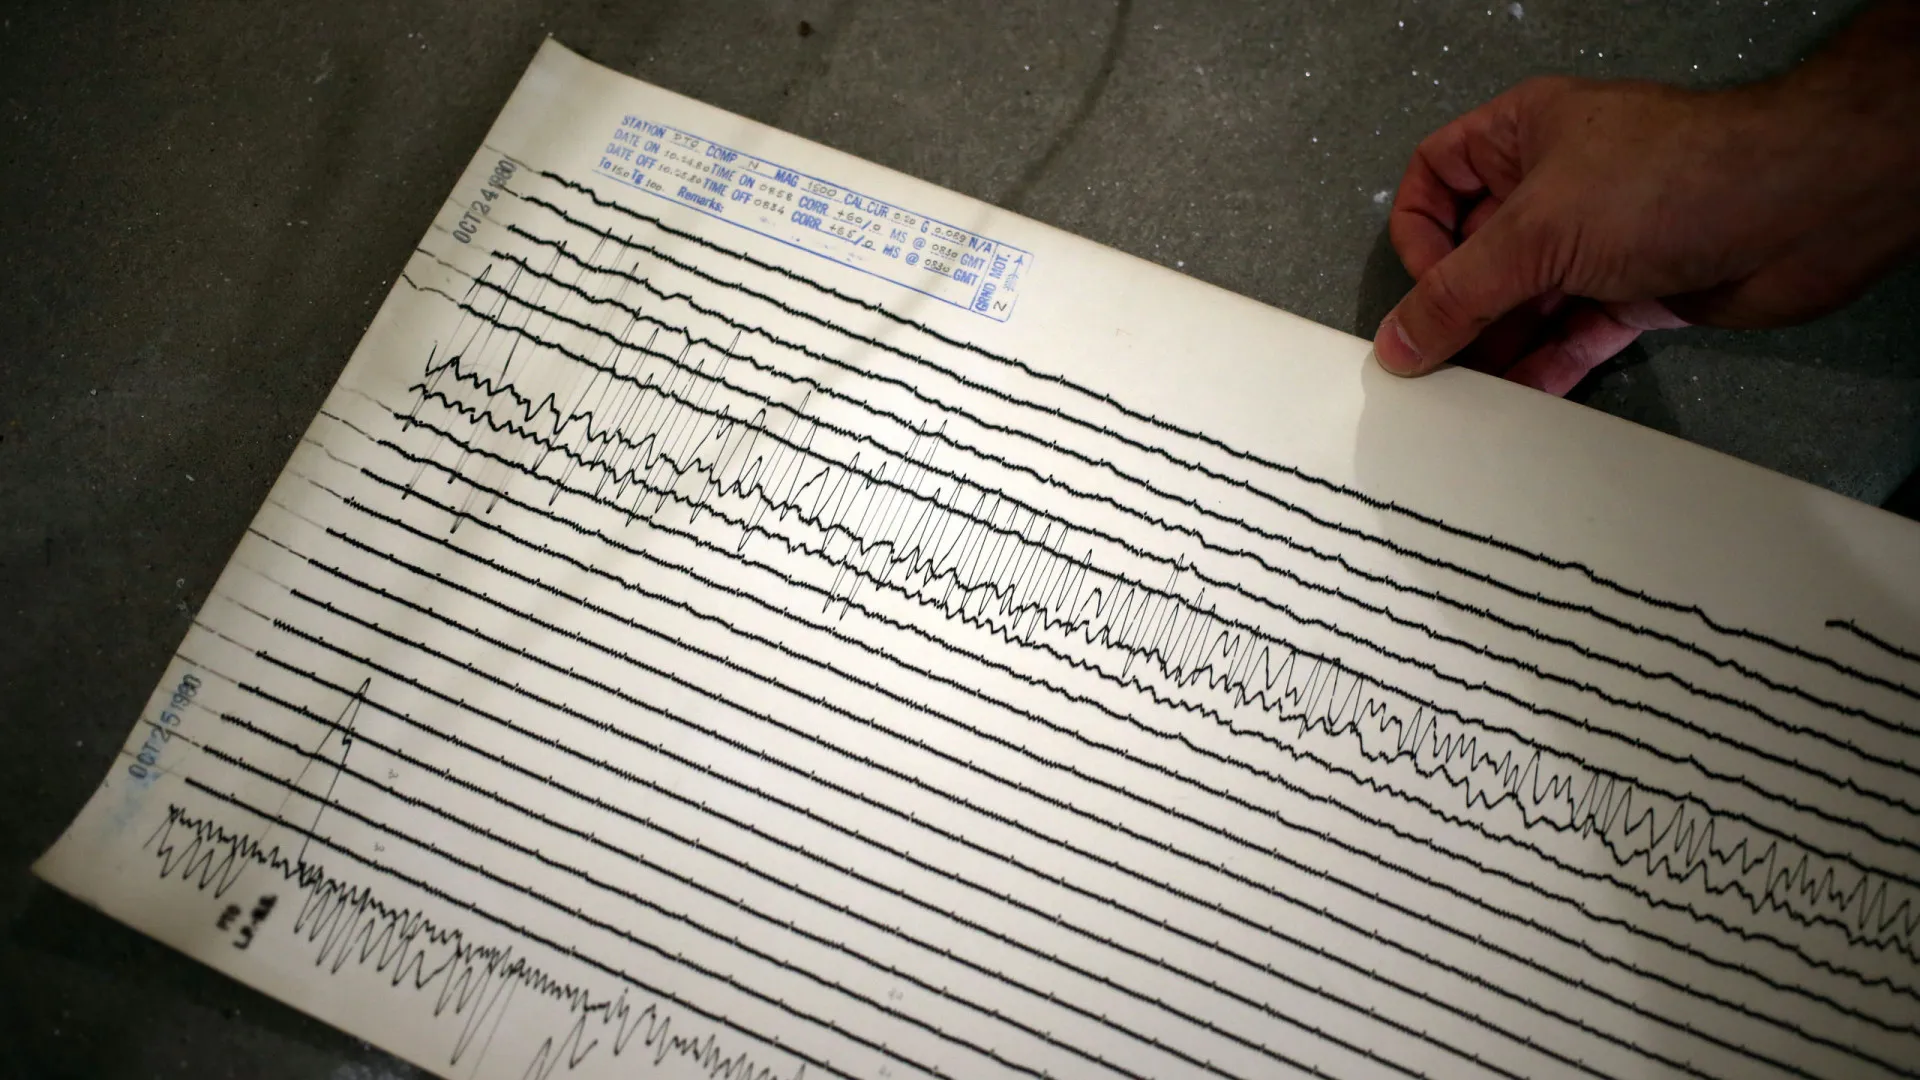 STATION PTO COMP N MAG 1500 CAL.CUR 0.20 G 0.089 N/A
DATE ON 10.24.80 TIME ON 0858 CORR +60/0 MS @ 0830 GMT
DATE OFF 10.25.80 TIME OFF 0834 CORR +65/0 MS @ 0830 GMT
To 15.0 Tg 100. Remarks:
GRND MOT.
N
OCT 24 1980
OCT 25 1980